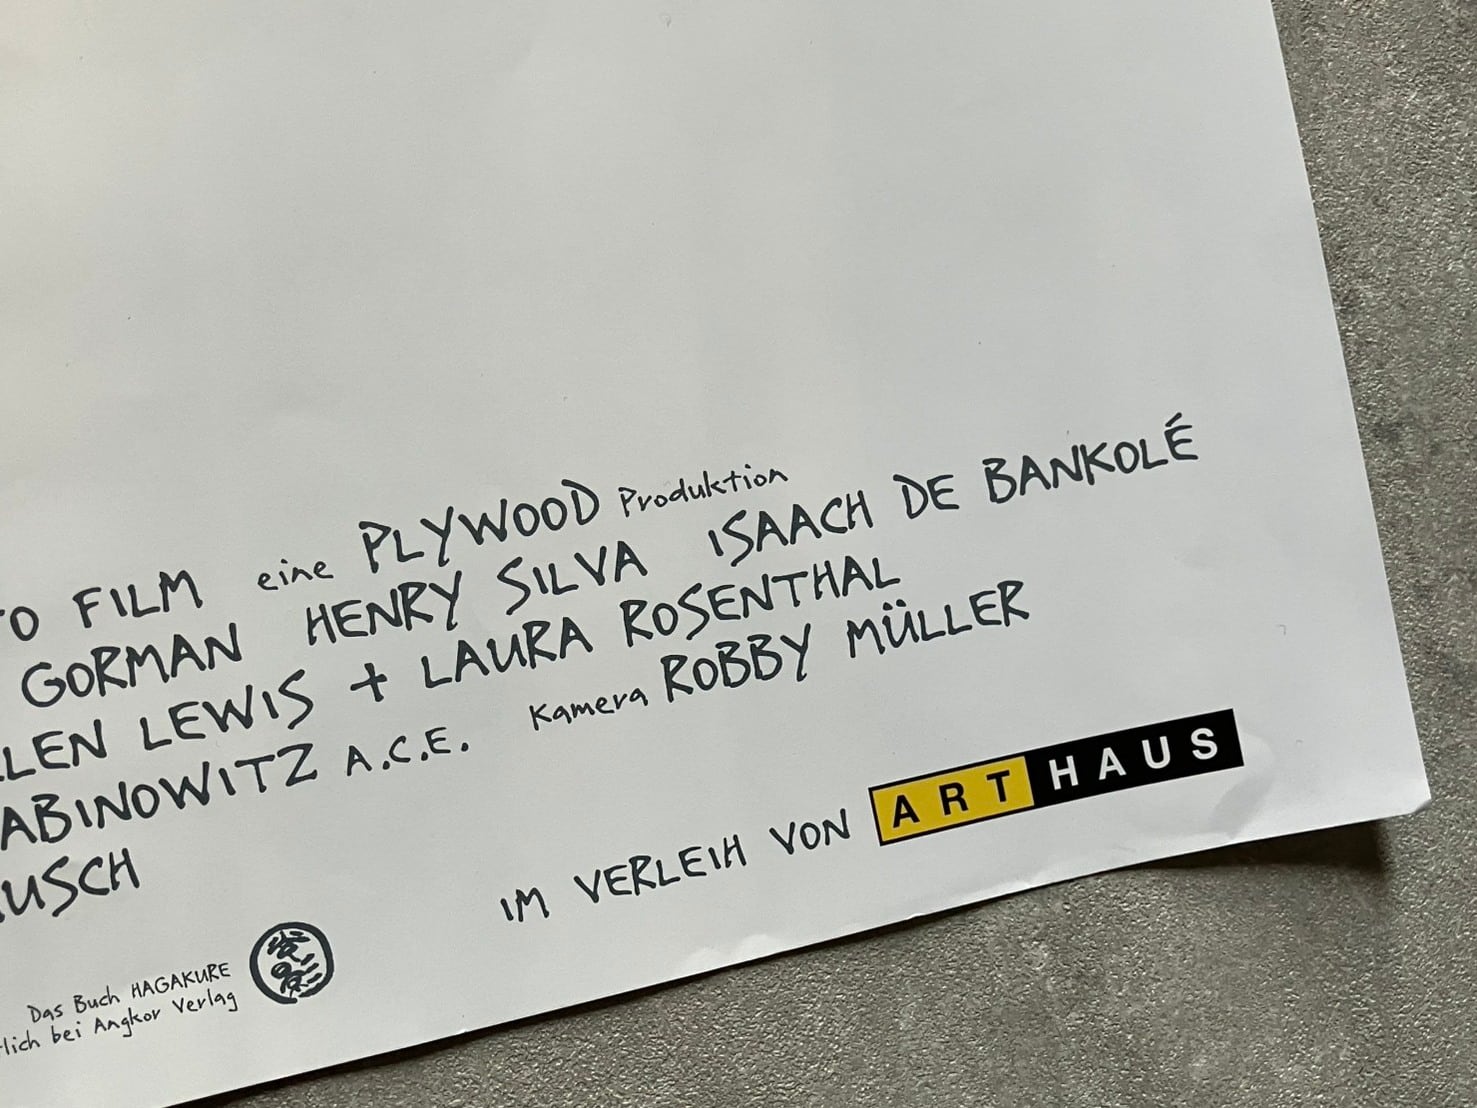 TO FILM eine PLYWOOD Produktion
GORMAN HENRY SILVA ISAACH DE BANKOLÉ
LLEN LEWIS + LAURA ROSENTHAL
ABINOWITZ A.C.E. Kamera ROBBY MÜLLER
USCH
IM VERLEIH VON ARTHAUS
Das Buch HAGAKURE
tlich bei Angkor Verlag